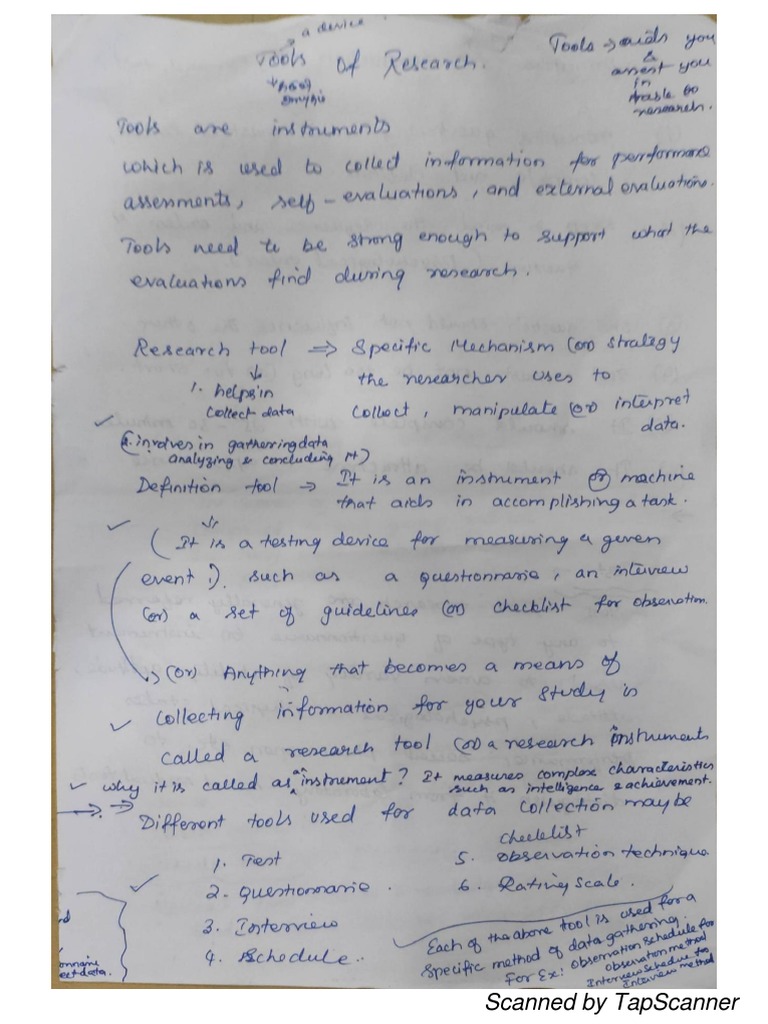 a device
Tools of Research.
Tools → aids you
&
assist you
in
to
research.
Tools are instruments
which is used to collect information for performance
assesments, self-evaluations, and external evaluations.
Tools need to be strong enough to support what the
evaluations find during research.
Research tool ⇒ Specific Mechanism (or) strategy
the researcher uses to
collect, manipulate (or) interpret
data.
1. helps in
collect data
(2. involves in gathering data
analyzing & concluding it)
Definition tool → It is an instrument (or) machine
that aids in accomplishing a task.
(It is a testing device for measuring a given
event!). such as a questionnarie, an interview
(or) a set of guidelines (or) checklist for observation.
(or) Anything that becomes a means of
collecting information for your study is
called a research tool (or) a research instruments
why it is called as an instrument? It measures complex characteristics
such as intelligence & achievement.
Different tools used for data collection may be
1. Test
2. Questionnarie.
3. Interview
4. Schedule.
checklist
5. Observation technique
6. Rating scale.
Each of the above tool is used for a
specific method of data gathering.
For Ex: Observation schedule for
observation method
Interview schedule for
Interview method
Scanned by TapScanner